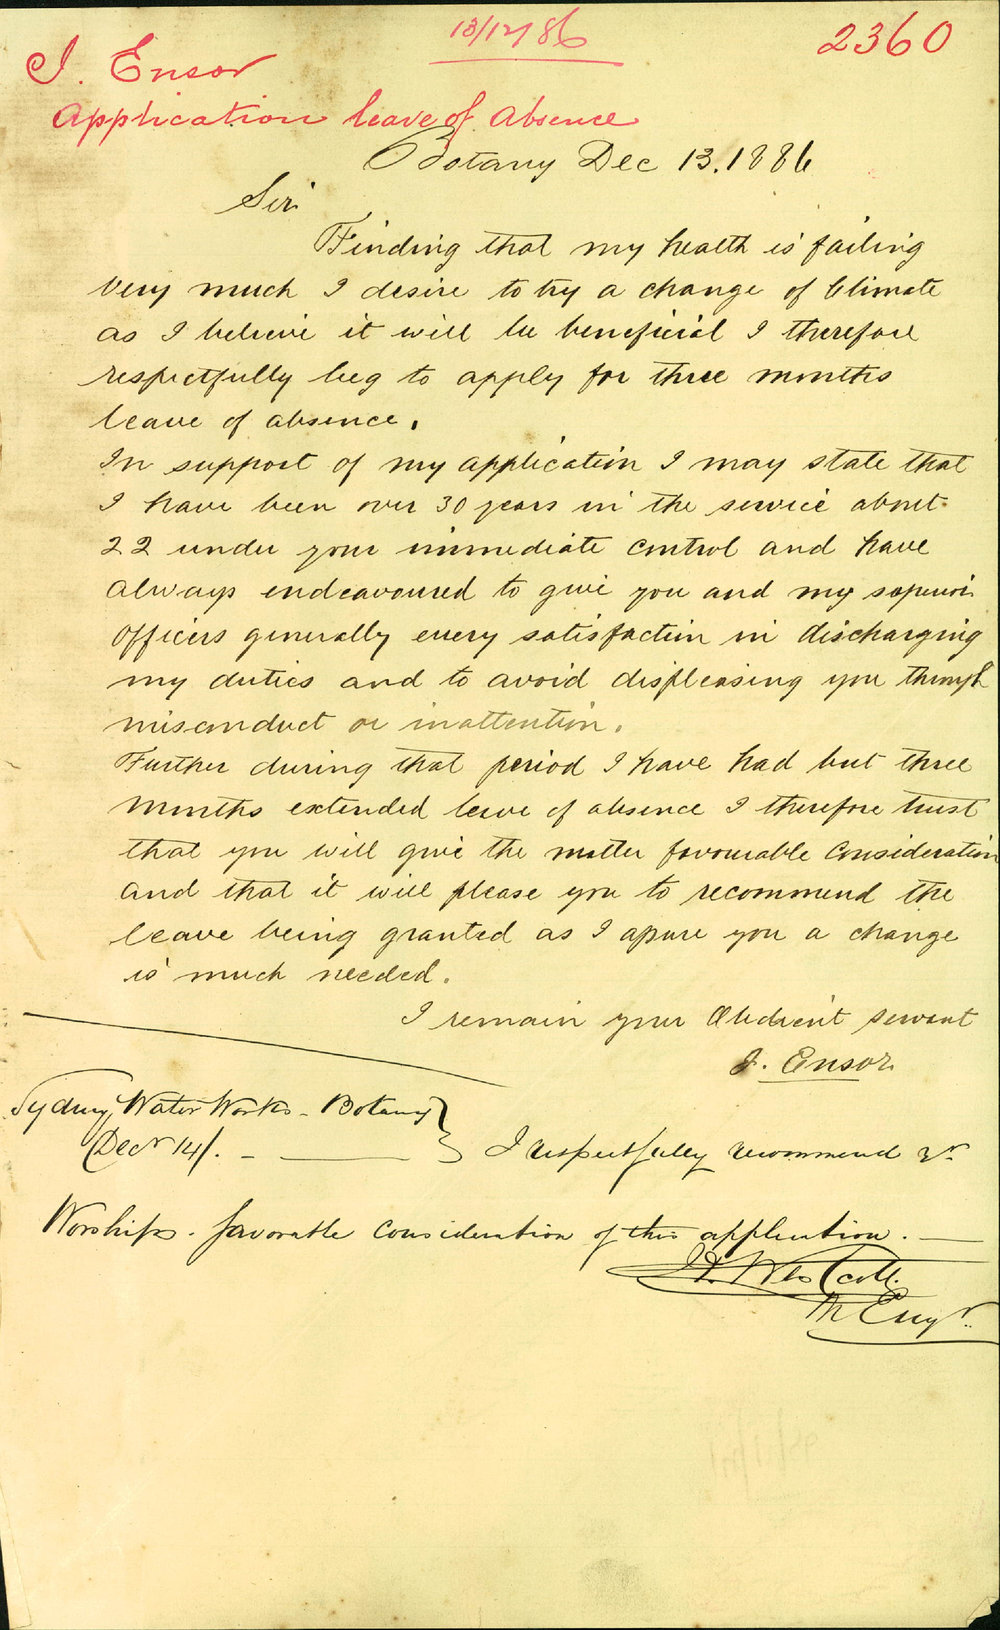 13/12/86
2360
J. Ensor
Application leave of absence
Botany Dec 13. 1886
Sir
Finding that my health is failing
very much I desire to try a change of Climate
as I believe it will be beneficial I therefore
respectfully beg to apply for three months
leave of absence.
In support of my application I may state that
I have been over 30 years in the service about
22 under your immediate control and have
always endeavoured to give you and my superior
officers generally every satisfaction in discharging
my duties and to avoid displeasing you through
misconduct or inattention.
Further during that period I have had but three
months extended leave of absence I therefore trust
that you will give the matter favourable consideration
and that it will please you to recommend the
leave being granted as I assure you a change
is much needed.
I remain your Obedient servant
J. Ensor
Sydney Water Works - Botany
(Decr 14/. - I respectfully recommend yr
Worships. favorable consideration of this application.
Westcott.
M Engr.